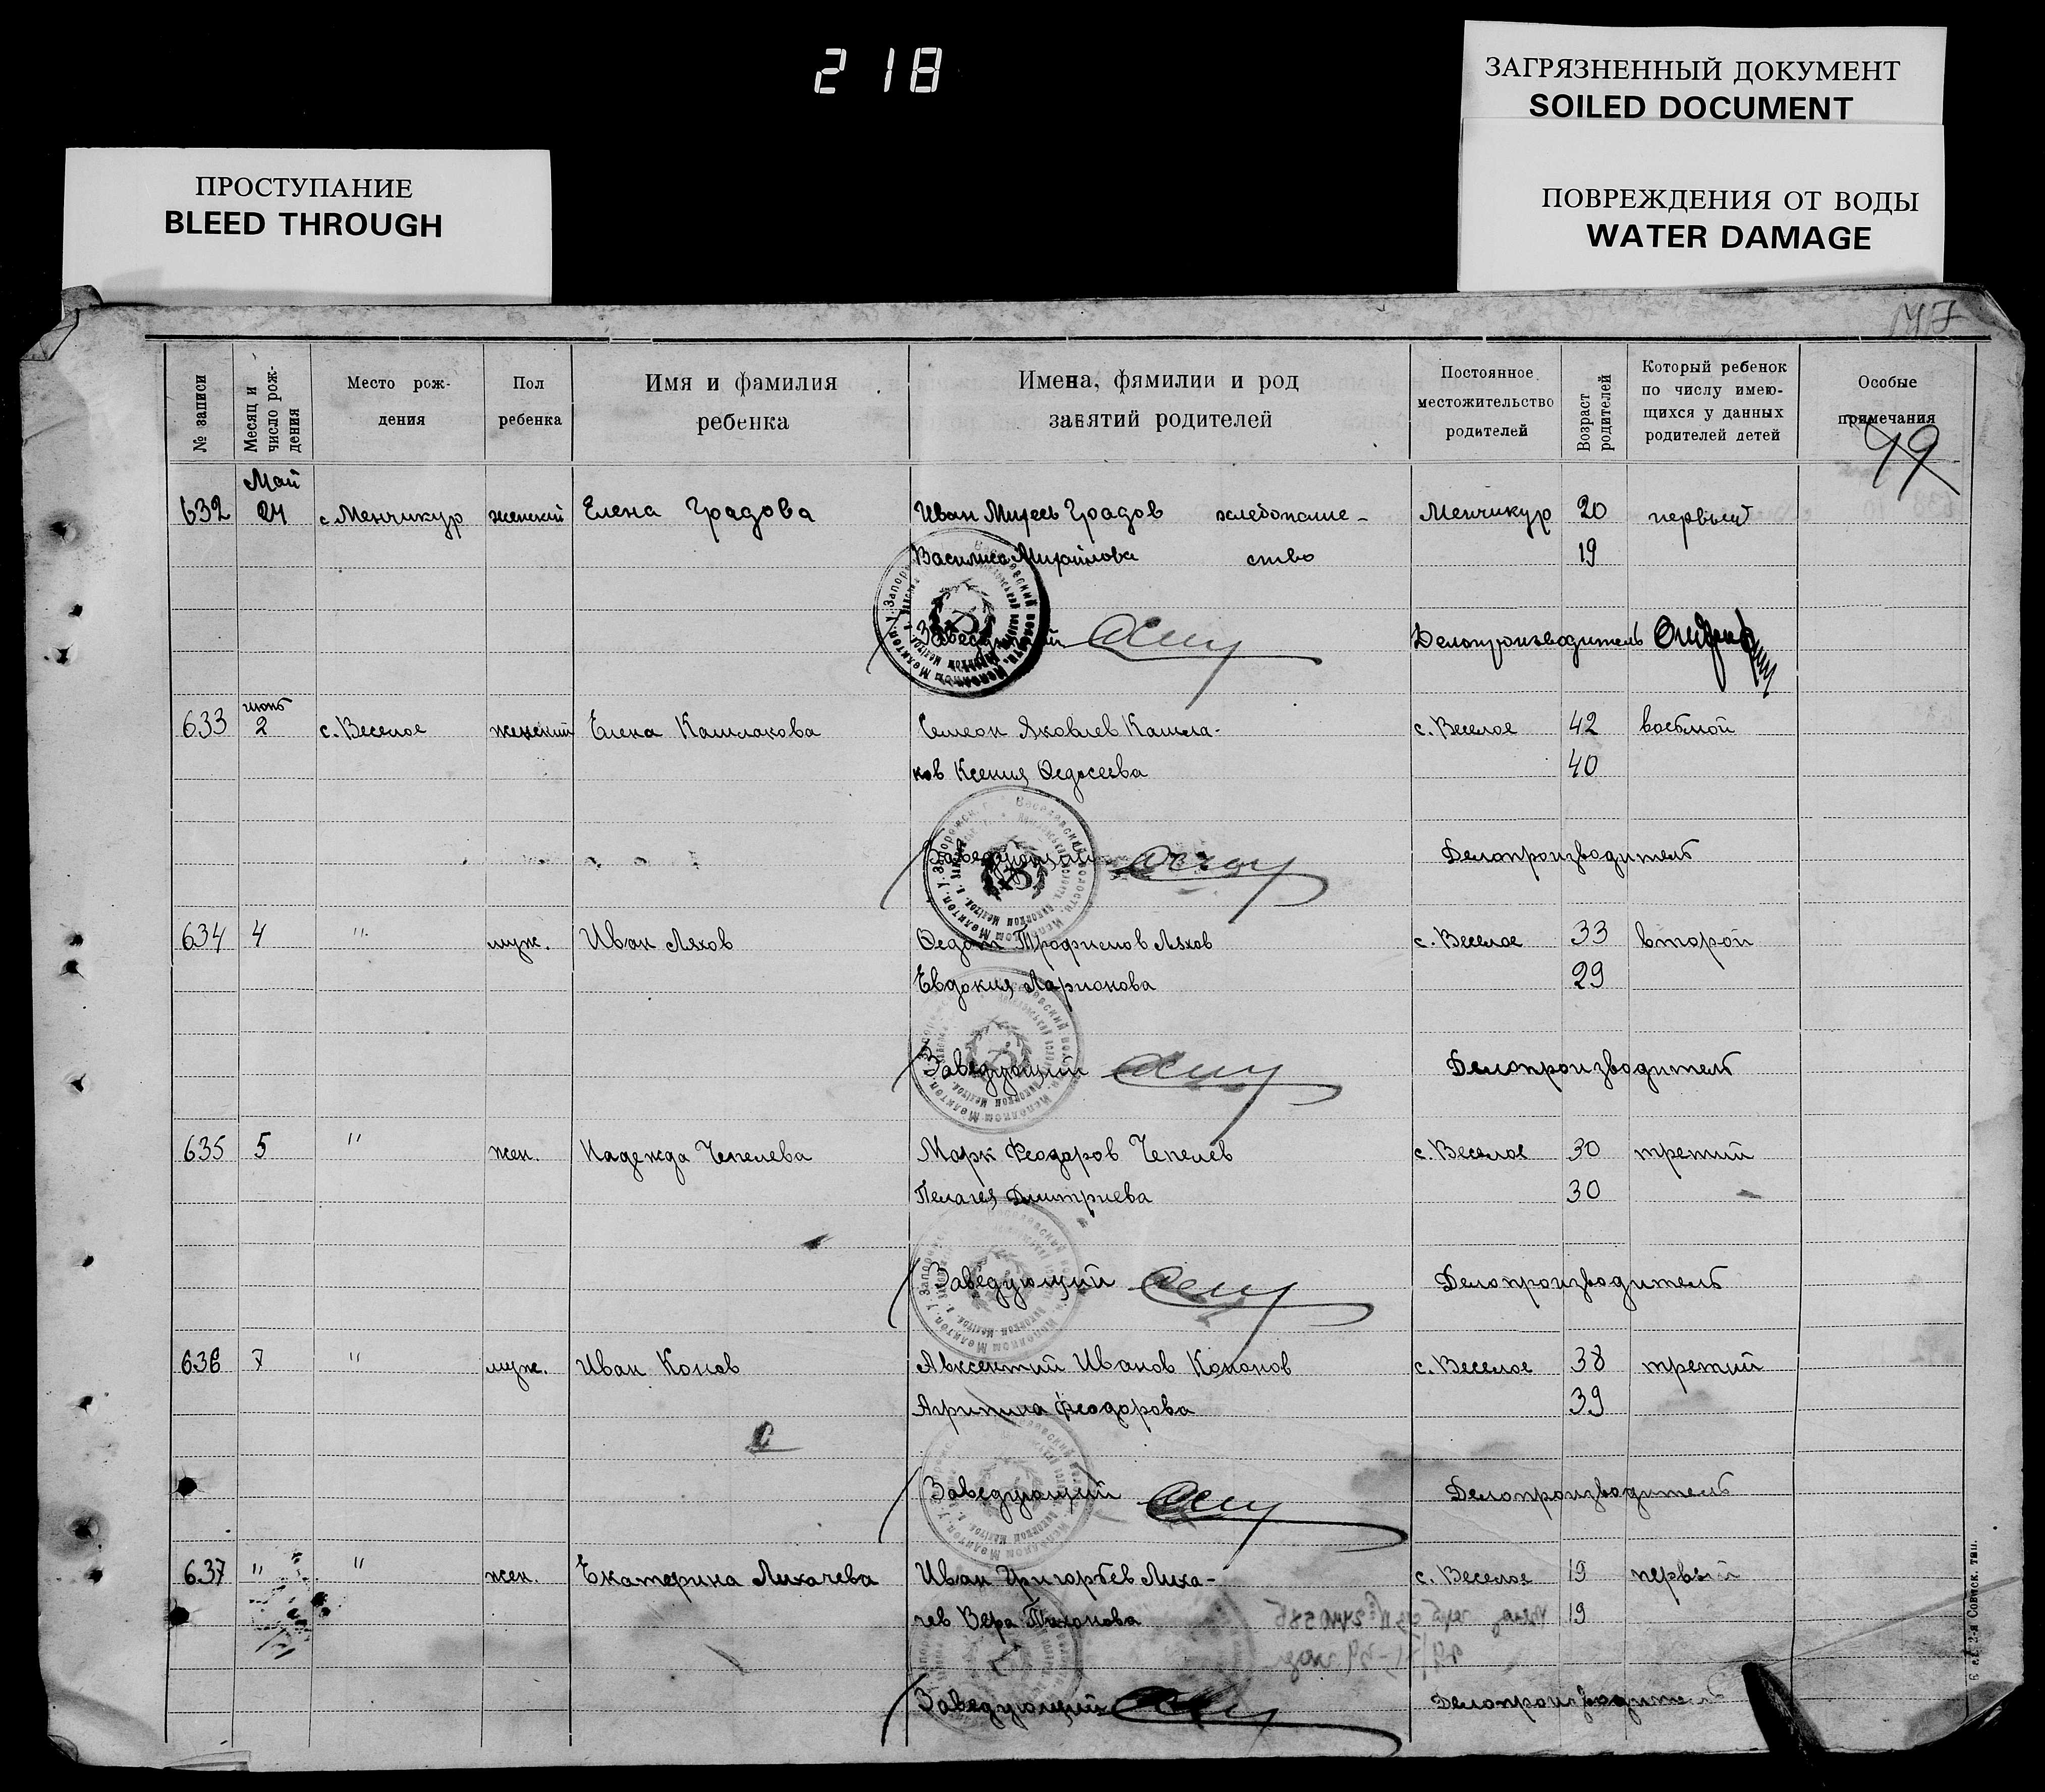 218
ЗАГРЯЗНЕННЫЙ ДОКУМЕНТ
SOILED DOCUMENT
ПОВРЕЖДЕНИЯ ОТ ВОДЫ
WATER DAMAGE
ПРОСТУПАНИЕ
BLEED THROUGH
№ записи
Месяц и число рождения
Место рож-
дения
Пол
ребенка
Имя и фамилия
ребенка
Имена, фамилии и род
занятий родителей
Постоянное
местожительство
родителей
Возраст
родителей
Который ребенок
по числу имею-
щихся у данных
родителей детей
Особые
примечания
49
Май
632 24 с Менчикур женский Елена Градова Иван Градов хлебопаше- Менчикур 20 первый
Василиса Михайлова ство 19
Заведующий Делопроизводитель
июнь
633 2 с. Веселое женский Елена Кашлакова Семеон Яковлев Кашла- с. Веселое 42 восьмой
ков Ксения Федосеева 40
Заведующий Делопроизводитель
634 4 " муж. Иван Ляхов Федот Трофимов Ляхов с. Веселое 33 второй
Евдокия Ларионова 29
Заведующий Делопроизводитель
635 5 " жен. Надежда Чепелева Марк Феодоров Чепелев с. Веселое 30 третий
Пелагея Дмитриева 30
Заведующий Делопроизводитель
636 7 " муж. Иван Конов Авксентий Иванов Кононов с. Веселое 38 третий
Агрипина Феодорова 39
Заведующий Делопроизводитель
637 " " жен. Екатерина Лихачева Иван Григорьев Лиха- с. Веселое 19 первый
чев Вера Тихонова 19
Заведующий Делопроизводитель